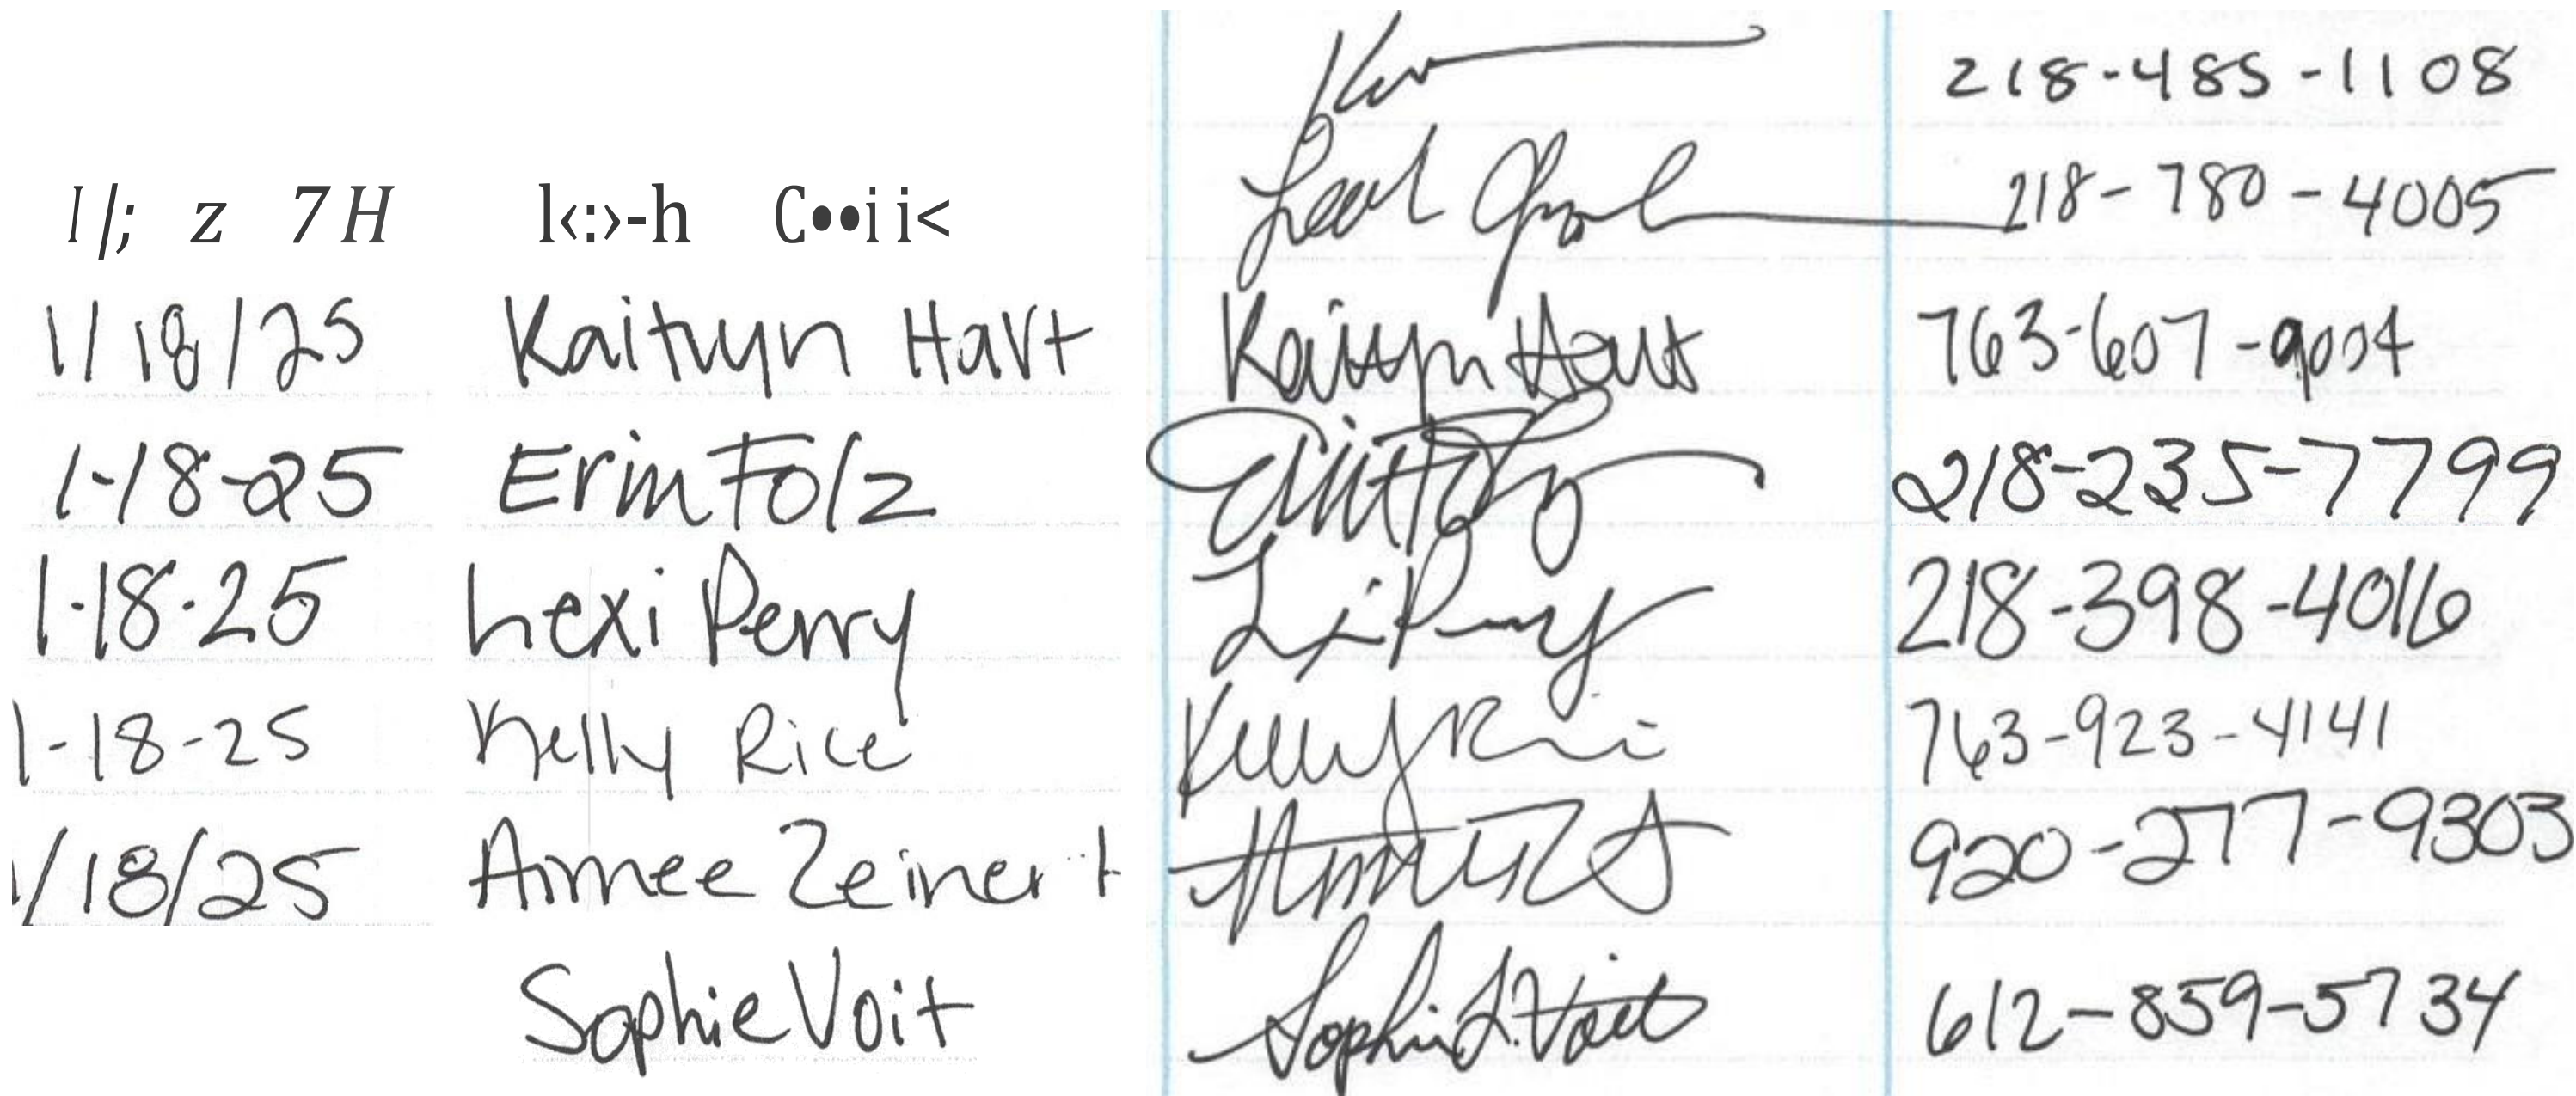 218-485-1108
I/; z 7H l‹:›-h C••i i< Leah 218-780-4005
1/18/25 Kaitlyn Hart Kaitlyn Hart 763-607-9004
1-18-25 Erin Folz 218-235-7799
1-18-25 Lexi Perry 218-398-4016
1-18-25 Kelly Rice Kelly Rice 763-923-4141
1/18/25 Aimee Zeinert 920-277-9303
Sophie Voit Sophie L. Voit 612-859-5734